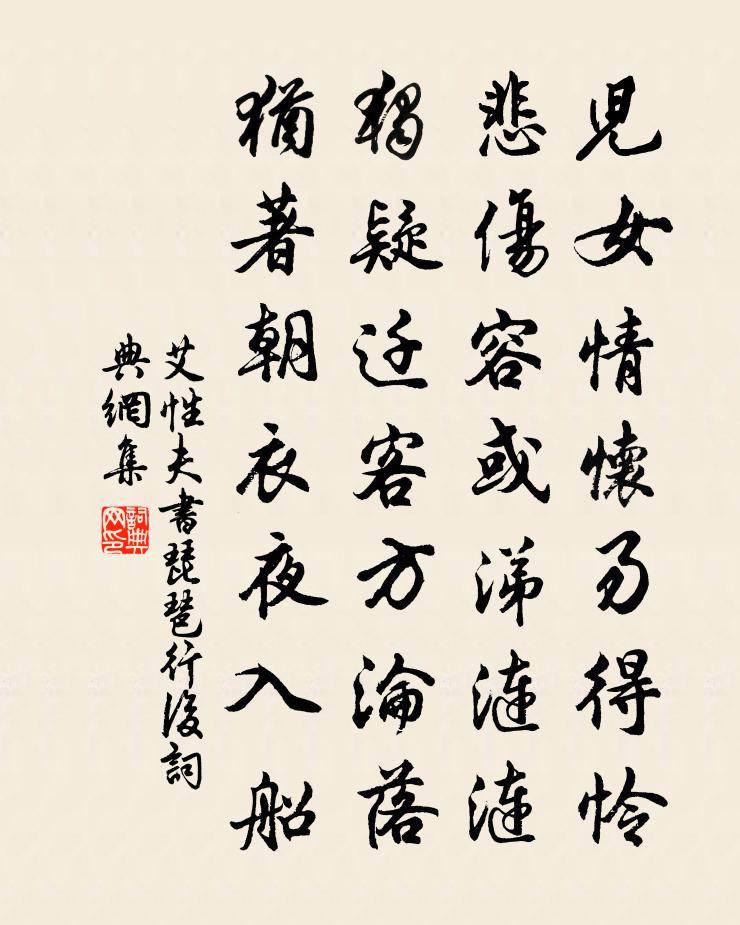 兒女情懷易得怜
悲傷容或涕漣漣
獨疑迁客方淪落
猶著朝衣夜入船
艾性夫書琵琶行後詞
典網集
詞典网印